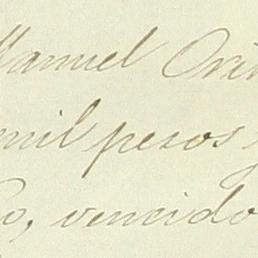 Manuel
mil pesos
vencido